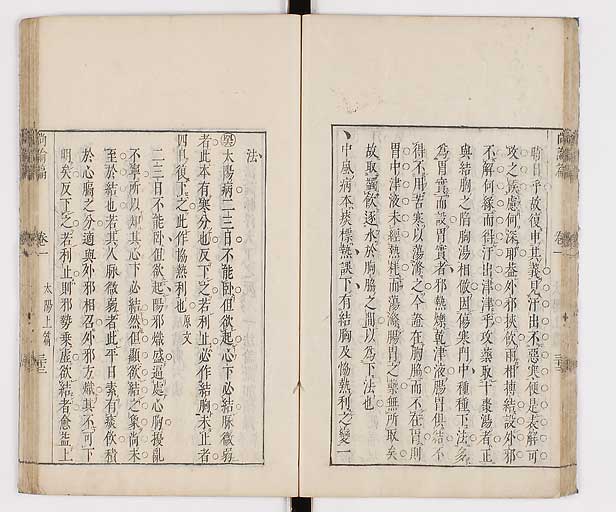 時日乎故復申其義見汗出不惡寒便是表解可
攻之候慮何深耶蓋外邪挾飲兩相搏結設外邪
不解何緣而得汗出津津乎攻藥取十棗湯者正
與結胸之陷胸湯相倣因傷寒門中種種下法多
為胃實而設胃實者邪熱爍乾津液腸胃俱結不
得不用苦寒以蕩滌之今證在胸脇而不在胃則
胃中津液未經熱耗而蕩滌腸胃之藥無所取矣
故取蠲飲逐水於胸脇之間以為下法也
中風病本痰標熱誤下有結胸及恊熱利之變一
法
太陽病二三日不能卧但欲起心下必結脉微弱
者此本有寒分也反下之若利止必作結胸未止者
四日復下之此作恊熱利也 原文
二三日不能卧但欲起陽邪熾盛逼處心胸擾亂
不寧所以知其心下必結然但顯欲結之象尚未
至於結也若其人脉微弱者此平日素有痰飲積
於心膈之分適與外邪相召外邪方熾其不可下
明矣反下之若利止則邪勢乘虛欲結者愈益上
尚論篇
卷一
太陽上篇
三十三
尚論篇
卷一